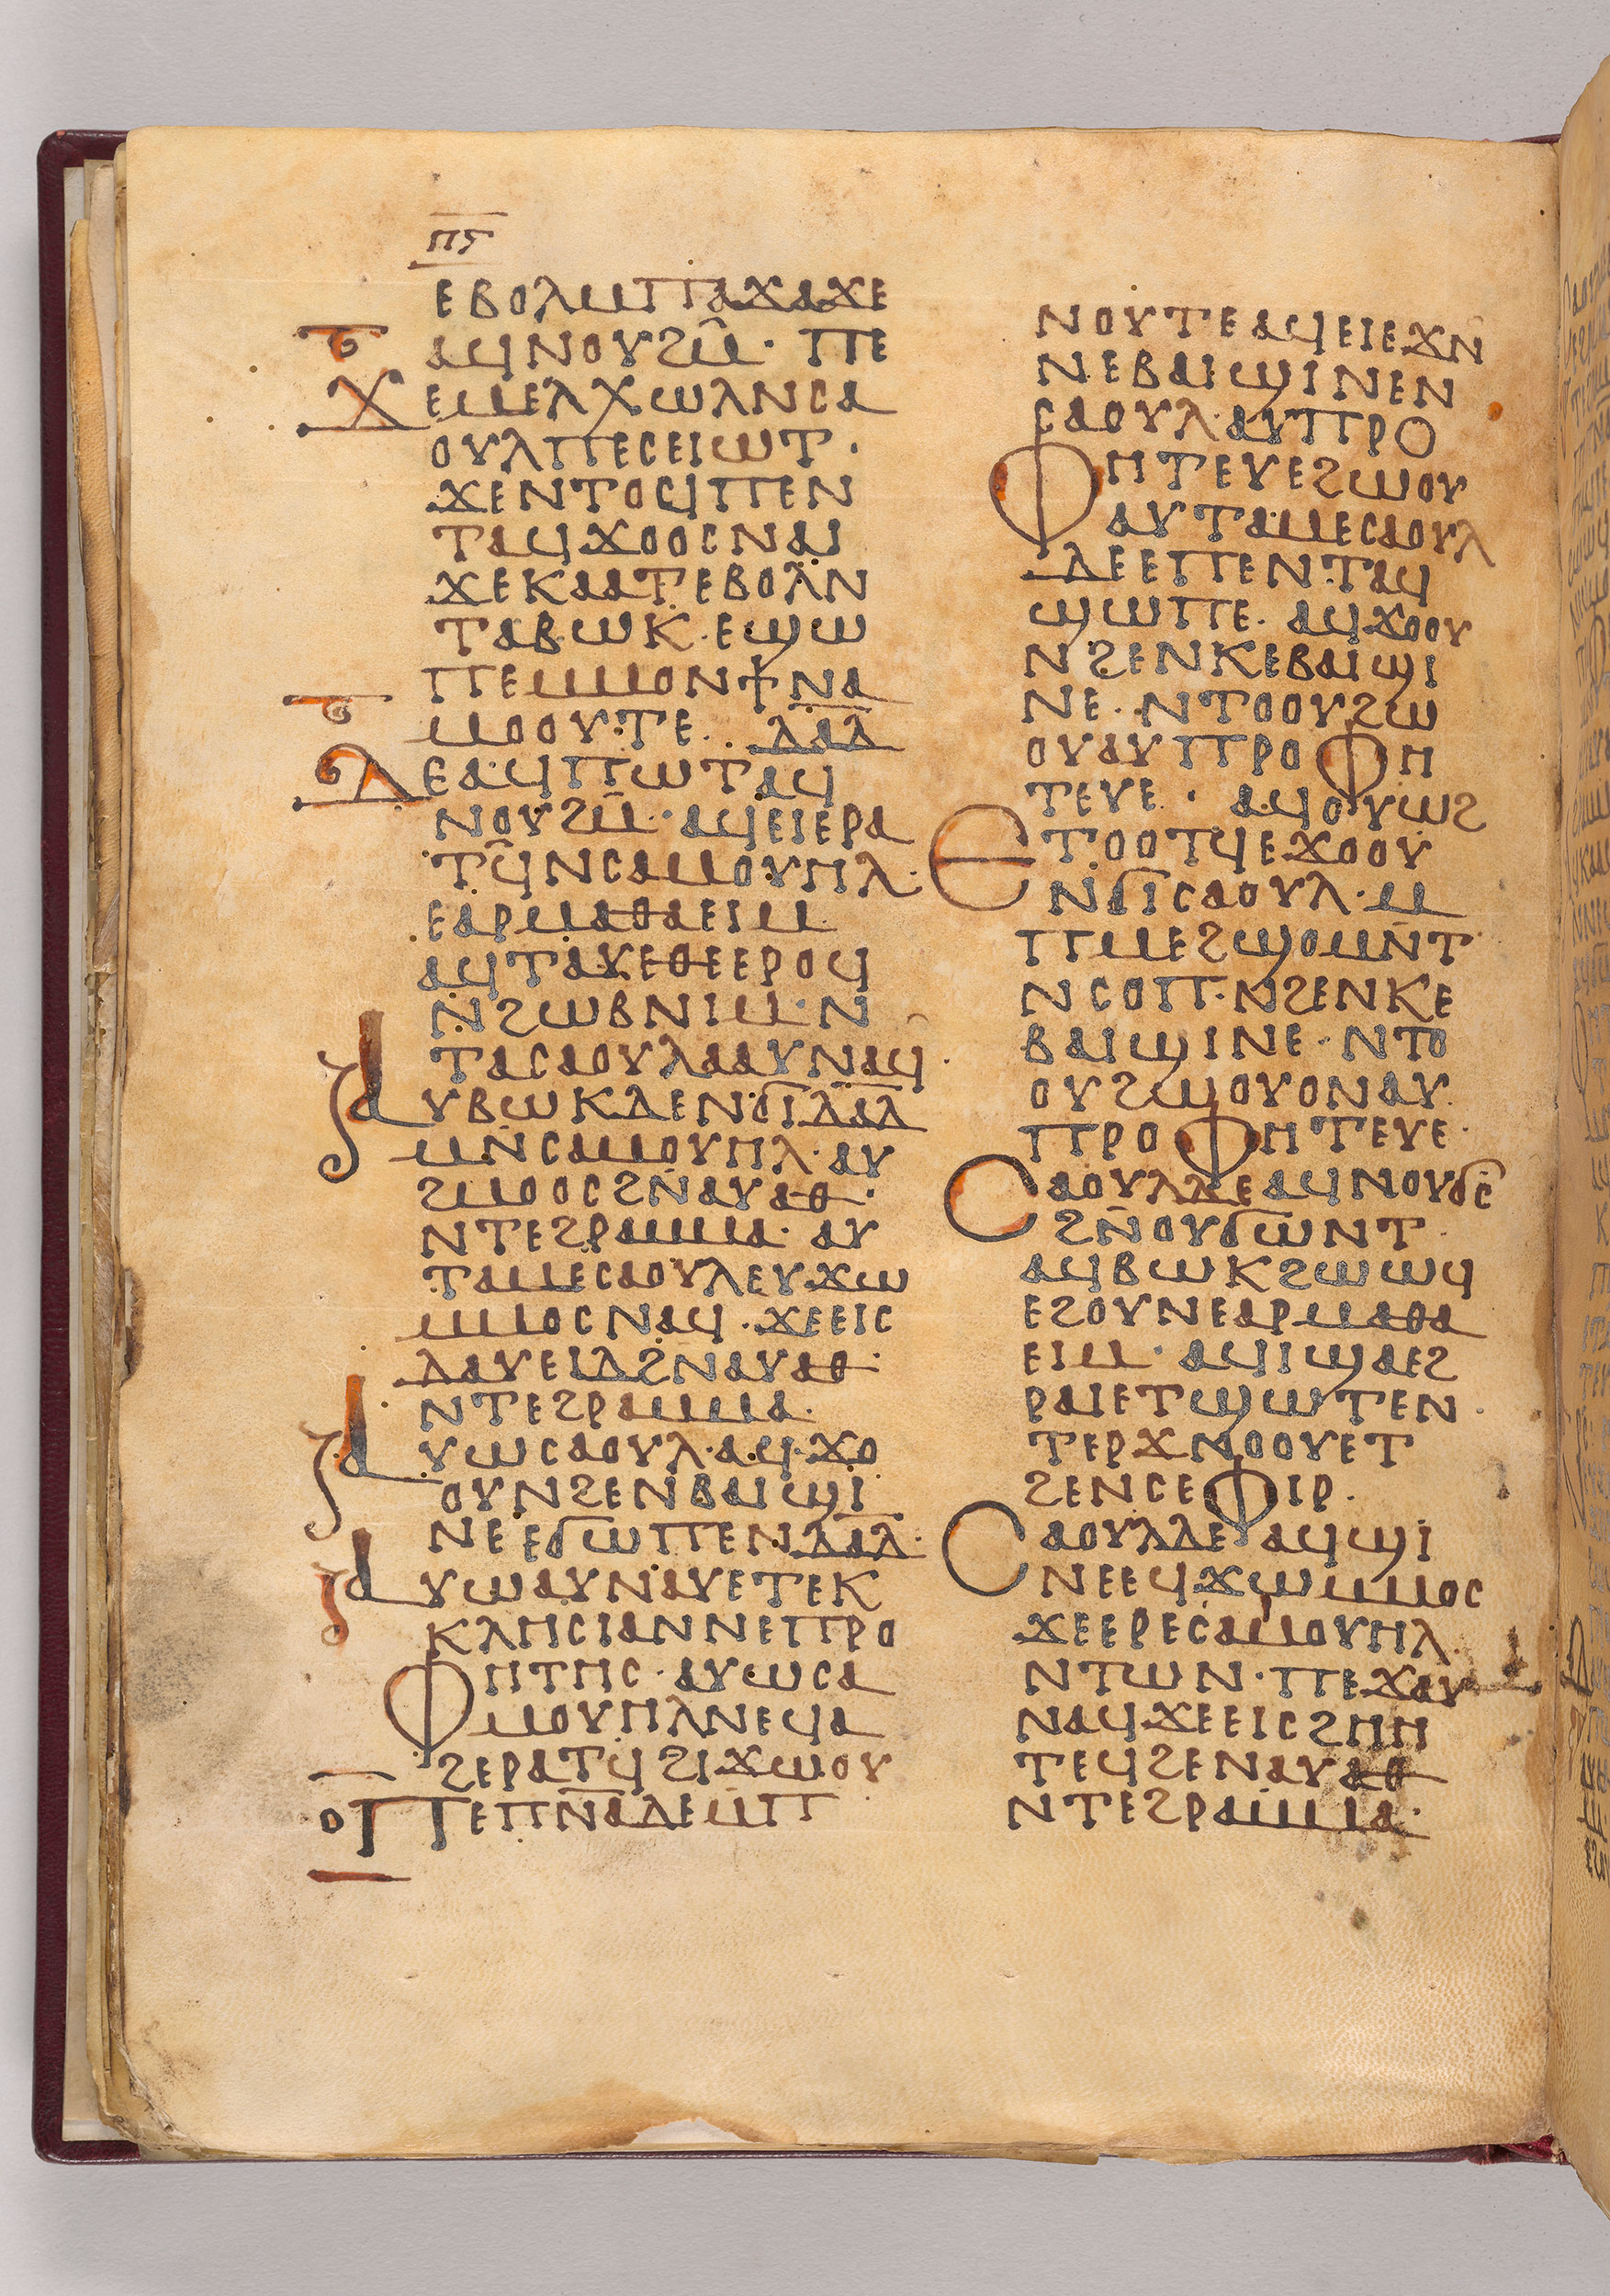 ⲡⲋ
ⲉⲃⲟⲗⲙⲡⲁϫⲁϫⲉ
ⲁϥⲛⲟⲩϩⲙ̂· ⲡⲉ
ϫⲉⲙⲉⲗⲭⲱⲗⲛⲥⲁ
ⲟⲩⲗⲡⲉⲥⲉⲓⲱⲧ·
ϫⲉⲛⲧⲟϥⲡⲉⲛ
ⲧⲁϥϫⲟⲟⲥⲛⲁⲓ
ϫⲉⲕⲁⲁⲧⲉⲃⲟⲗⲛ
ⲧⲁⲃⲱⲕ·ⲉϣⲱ
ⲡⲉⲙⲙⲟⲛϯⲛⲁ
ⲙⲟⲟⲩⲧⲉ· ⲇⲁ̅ⲇ
ⲇⲉⲁϥⲡⲱⲧⲁϥ
ⲛⲟⲩϩⲙ̅·ⲁϥⲉⲓⲉⲣⲁ
ⲧϥ̂ⲛⲥⲁⲙⲟⲩⲏⲗ·
ⲉⲁⲣⲙⲁⲑⲁⲉⲓⲙ
ⲁϥⲧⲁⲩⲉⲑⲉⲉⲣⲟϥ
ⲛϩⲱⲃⲛⲓⲙ·ⲛ
ⲧⲁⲥⲁⲟⲩⲗⲁⲁⲩⲛⲁϥ·
ⲁⲩⲃⲱⲕⲇⲉⲛϭⲓⲇⲁ̅ⲇ
ⲙⲛⲥⲁⲙⲟⲩⲏⲗ·ⲁⲩ
ϩⲙⲟⲟⲥϩⲛⲁⲩⲁⲑ·
ⲛⲧⲉϩⲣⲁⲙⲙⲁ· ⲁⲩ
ⲧⲁⲙⲉⲥⲁⲟⲩⲗⲉⲩϫⲱ
ⲙⲙⲟⲥⲛⲁϥ·ϫⲉⲉⲓⲥ
ⲇⲁⲩⲉⲓⲇϩⲛⲁⲩⲁⲑ·
ⲛⲧⲉϩⲣⲁⲙⲙⲁ·
ⲁⲩⲱⲥⲁⲟⲩⲗ·ⲁϥ·ϫⲟ
ⲟⲩⲛϩⲉⲛⲃⲁⲓϣⲓ
ⲛⲉⲉϭⲱⲡⲉⲛⲇⲁ̅ⲇ·
ⲁⲩⲱⲁⲩⲛⲁⲩⲉⲧⲉⲕ
ⲕⲗⲏⲥⲓⲁⲛⲛⲉⲡⲣⲟ
ⲫⲏⲧⲏⲥ·ⲁⲩⲱⲥⲁ
ⲙⲟⲩⲏⲗⲛⲉϥⲁ
ϩⲉⲣⲁⲧϥϩⲓϫⲱⲟⲩ
ⲟ ⲡⲉⲡⲛ̅ⲁ̅ⲇⲉⲙⲡ
ⲛⲟⲩⲧⲉⲁϥⲉⲓⲉϫⲛ
ⲛⲉⲃⲁⲓϣⲓⲛⲉⲛ
ⲥⲁⲟⲩⲗ·ⲁⲩⲡⲣⲟ
ⲫⲏⲧⲉⲩⲉϩⲱⲟⲩ
ⲁⲩⲧⲁⲙⲉⲥⲁⲟⲩⲗ
ⲇⲉⲉⲡⲉⲛⲧⲁϥ
ϣⲱⲡⲉ·ⲁϥϫⲟⲟⲩ
ⲛϩⲉⲛⲕⲉⲃⲁⲓϣⲓ
ⲛⲉ·ⲛⲧⲟⲟⲩϩⲱ
ⲟⲩⲁⲩⲡⲣⲟⲫⲏ
ⲧⲉⲩⲉ· ⲁϥⲟⲩⲱϩ
ⲉⲧⲟⲟⲧϥⲉϫⲟⲟⲩ
ⲛϭⲓⲥⲁⲟⲩⲗ·ⲙ
ⲡⲙⲉϩϣⲟⲙⲛⲧ
ⲛⲥⲟⲡ·ⲛϩⲉⲛⲕⲉ
ⲃⲁⲓϣⲓⲛⲉ·ⲛⲧⲟ
ⲟⲩϩⲱⲟⲩⲟⲛⲁⲩ
ⲡⲣⲟⲫⲏⲧⲉⲩⲉ·
ⲥⲁⲟⲩⲗⲇⲉⲁϥⲛⲟⲩϭⲥ
ϩⲛⲟⲩϭⲱⲛⲧ·
ⲁϥⲃⲱⲕϩⲱⲱϥ
ⲉϩⲟⲩⲛⲉⲁⲣⲙⲁⲑⲁ
ⲉⲓⲙ·ⲁϥⲓϣⲁⲉϩ
ⲣⲁⲓⲉⲧϣⲱⲧⲉⲛ·
ⲧⲉⲣϫⲛⲟⲟⲩⲉⲧ
ϩⲉⲛⲥⲉⲫⲓⲣ·
ⲥⲁⲟⲩⲗⲇⲉⲁϥϣⲓ
ⲛⲉⲉϥϫⲱⲙⲙⲟⲥ
ϫⲉⲉⲣⲉⲥⲁⲙⲟⲩⲏⲗ
ⲛⲧⲱⲛ·ⲡⲉϫⲁⲩ
ⲛⲁϥϫⲉⲉⲓⲥϩⲏⲏ
ⲧⲉϥϩⲉⲛⲁⲩⲁⲑ
ⲛⲧⲉϩⲣⲁⲙⲙⲁ·